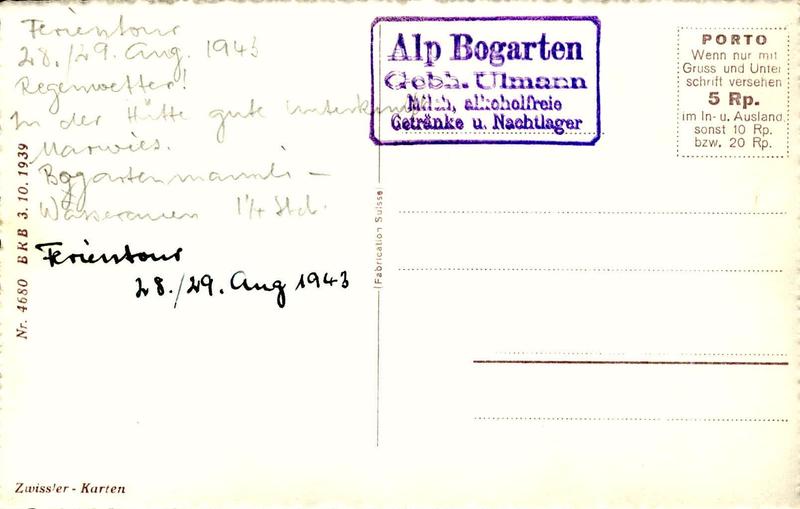 Ferientour
28./29. Aug. 1943
Regenwetter!
In der Hütte gute Unterkunft
Marwies.
Bogartenmannli -
Wasserauen 1¼ Std.
Ferientour
28./29. Aug 1943
Nr. 4680 BRB 3.10.1939
Zwissler - Karten
Fabrication Suisse
Alp Bogarten
Gebh. Ulmann
Milch, alkoholfreie
Getränke u. Nachtlager
PORTO
Wenn nur mit
Gruss und Unter
schrift versehen
5 Rp.
im In- u. Ausland
sonst 10 Rp.
bzw. 20 Rp.